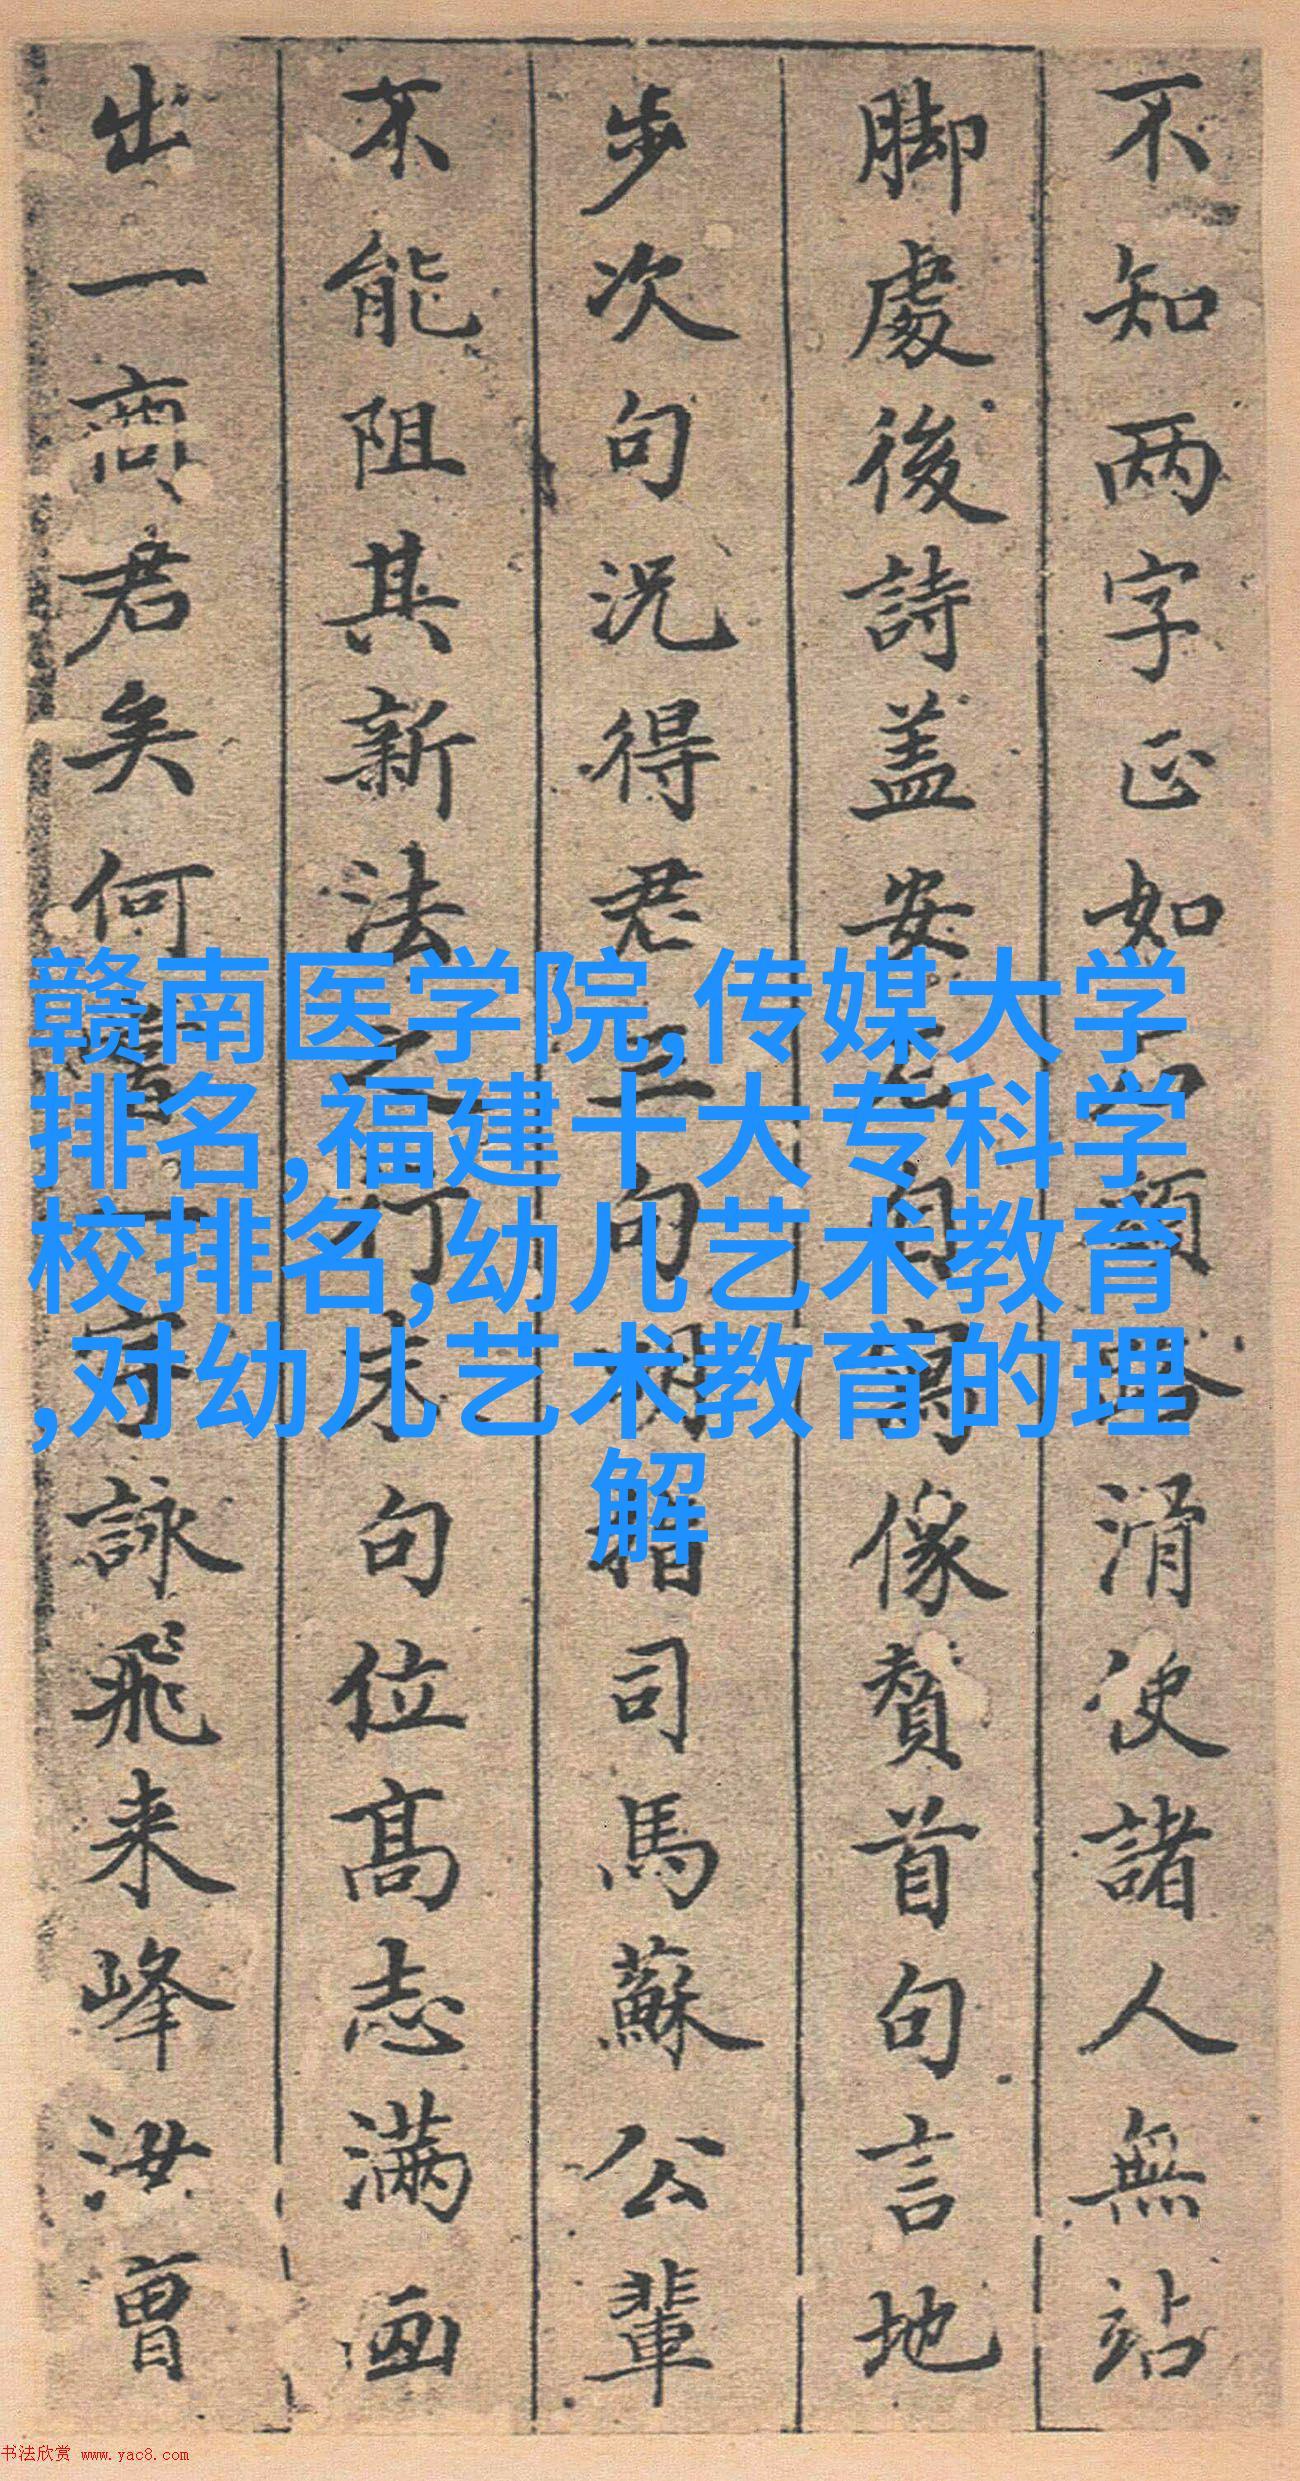 不知两字正如頭路滑使諸人無站
脚處後詩盖安自寫像賛首句言地
步次句况得君三句明指司馬蘇公輩
不能阻其新法之行末句位高志满画
出一商君矣何詠飛来峰汝曾
赣南医学院,传媒大学
排名,福建十大专科学
校排名,幼儿艺术教育
,对幼儿艺术教育的理
解
书法欣赏 www.yac8.com